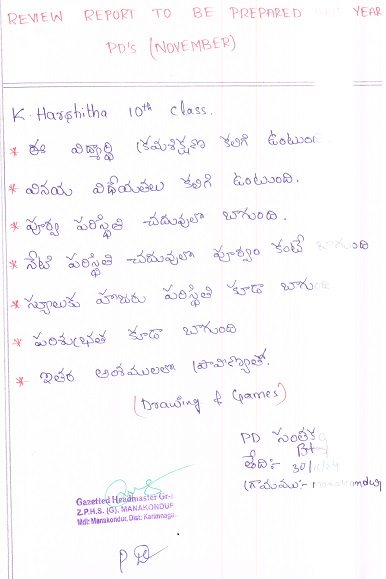 REVIEW REPORT TO BE PREPARED YEAR
PD's (NOVEMBER)
K. Harshitha 10th class.
* ఈ విద్యార్థి క్రమశిక్షణ కలిగి ఉంటుంది
* వినయ విధేయతలు కలిగి ఉంటుంది.
* పూర్వ పరిస్థితి చదువులో బాగుంది.
* నేటి పరిస్థితి చదువులో పూర్వం కంటే
* స్కూలుకు హాజరు పరిస్థితి కూడా
* పరిశుభ్రత కూడా బాగుంది
* ఇతర అంశములలో ప్రావీణ్యతో.
(Drawing & Games)
PD సంతకం
తేది:- 30/
గ్రామము:- manakondur
Gazetted Headmaster Gr-
Z.P.H.S. (G), MANAKONDUR
Mdl: Manakondur, Dist: Karimnagar
PD